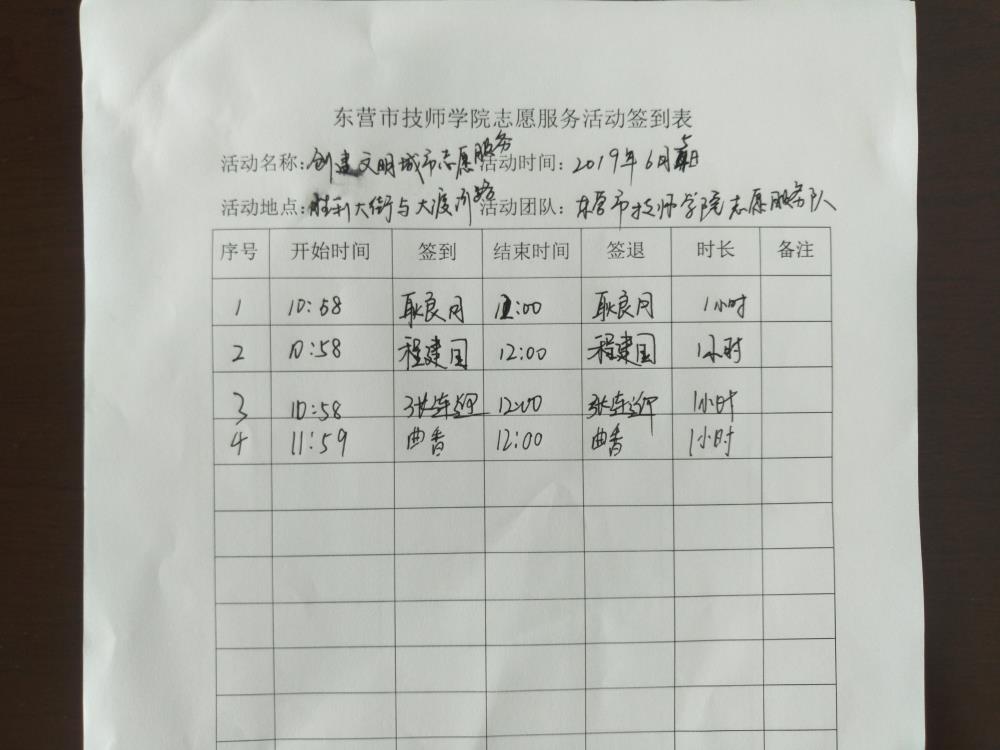 东营市技师学院志愿服务活动签到表
活动名称:创建文明城市志愿服务 活动时间:2019年6月
活动地点:胜利大街与大渡河路 活动团队:东营市技师学院志愿服务队
序号 开始时间 签到 结束时间 签退 时长 备注
1 10:58 耿良同 :00 耿良同 1小时
2 10:58 程建国 12:00 程建国 1小时
3 10:58 张 12:00 张 1小时
4 11:59 曲香 12:00 曲香 1小时